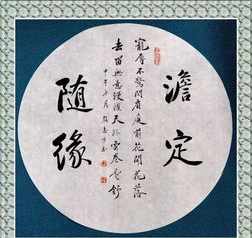 澹定
寵辱不驚閒看庭前花開花落
去留無意漫随天外雲卷雲舒
甲午
随緣